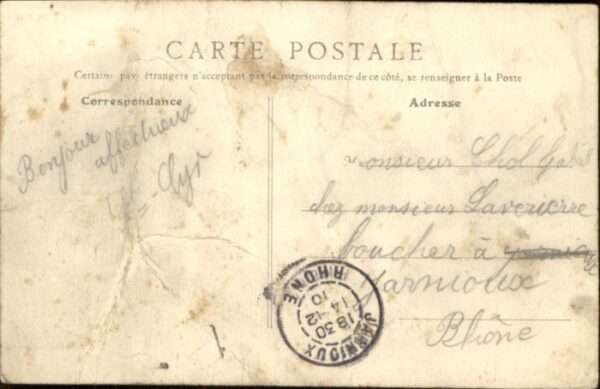 CARTE POSTALE
Certains pays étrangers n'acceptant pas la correspondance de ce côté, se renseigner à la Poste
Correspondance
Adresse
Bonjour
affectueux
St-Cyr
Monsieur Chol
chez monsieur Laverierre
boucher à
Jarnioux
Rhône
JARNIOUX
RHONE
1830
14-12
10